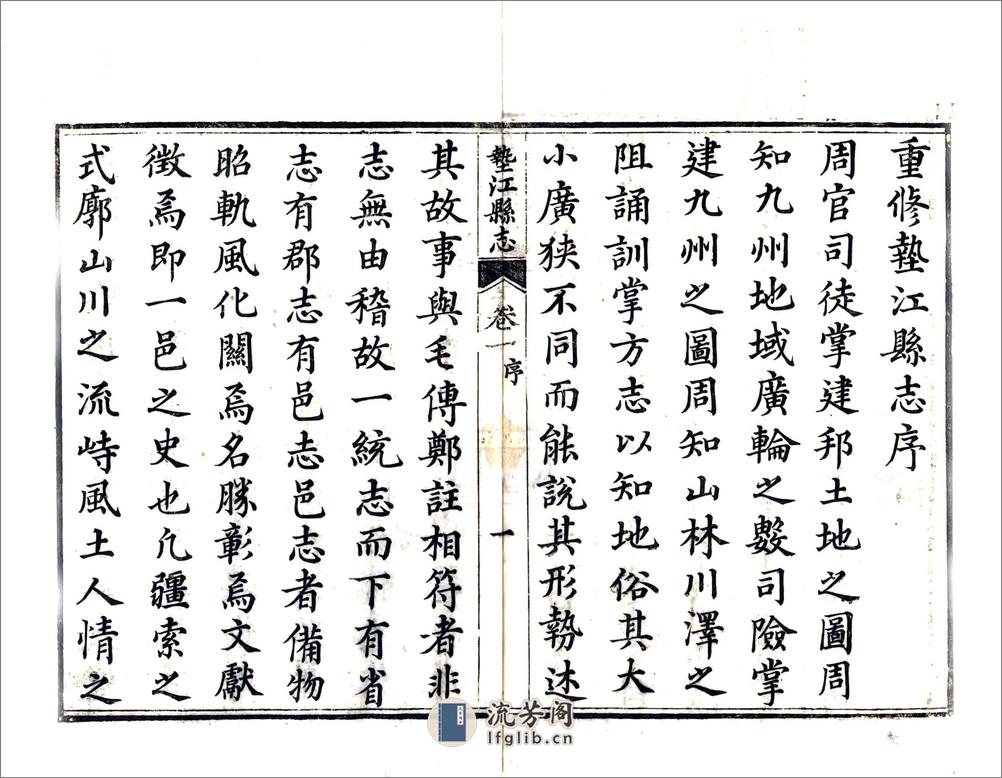 重修墊江縣志序
周官司徒掌建邦土地之圖周
知九州地域廣輪之數司險掌
建九州之圖周知山林川澤之
阻誦訓掌方志以知地俗其大
小廣狹不同而能說其形勢述
墊江縣志
卷一
序
一
其故事與毛傳鄭註相符者非
志無由稽故一統志而下有省
志有郡志有邑志邑志者備物
昭軌風化關焉名勝彰焉文獻
徵焉即一邑之史也凢疆索之
式廓山川之流峙風土人情之
流芳阁
lfglib.cn